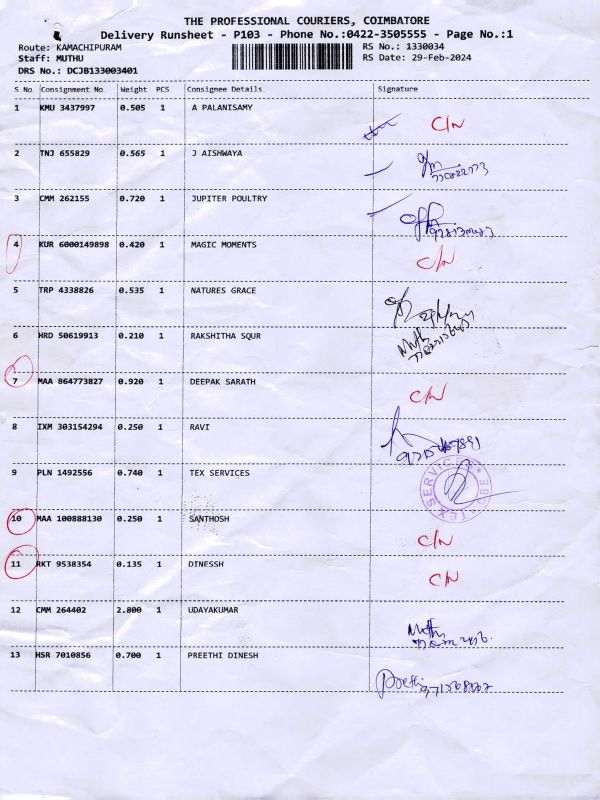 THE PROFESSIONAL COURIERS, COIMBATORE
Delivery Runsheet - P103 - Phone No.:0422-3505555 - Page No.:1
Route: KAMACHIPURAM RS No.: 1330034
Staff: MUTHU RS Date: 29-Feb-2024
DRS No.: DCJB133003401
S No. Consignment No Weight PCS Consignee Details Signature
1 KMU 3437997 0.505 1 A PALANISAMY C/N
2 TNJ 655829 0.565 1 J AISHWAYA
3 CMM 262155 0.720 1 JUPITER POULTRY
4 KUR 6000149898 0.420 1 MAGIC MOMENTS C/N
5 TRP 4338826 0.535 1 NATURES GRACE
6 HRD 50619913 0.210 1 RAKSHITHA SQUR
7 MAA 864773827 0.920 1 DEEPAK SARATH C/N
8 IXM 303154294 0.250 1 RAVI
9 PLN 1492556 0.740 1 TEX SERVICES
10 MAA 100888130 0.250 1 SANTHOSH C/N
11 RKT 9538354 0.135 1 DINESSH C/N
12 CMM 264402 2.800 1 UDAYAKUMAR
13 HSR 7010856 0.700 1 PREETHI DINESH
Preethi